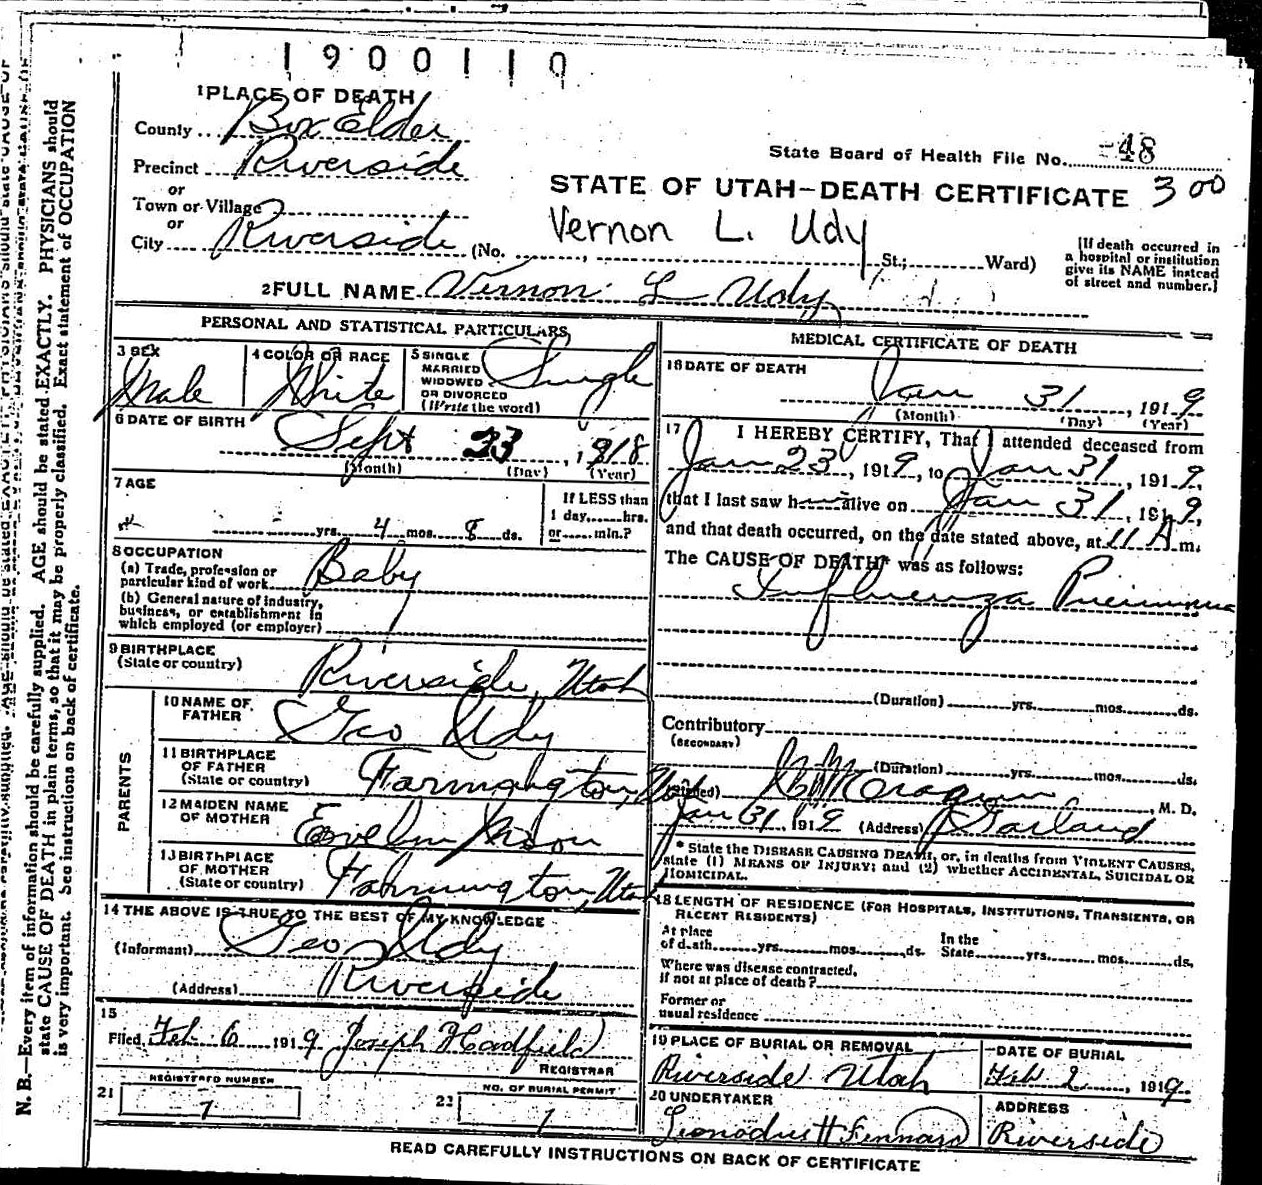 1900110
1 PLACE OF DEATH
County Box Elder
State Board of Health File No. 48
Precinct Riverside
or
STATE OF UTAH—DEATH CERTIFICATE 300
Town or Village
or
Vernon L. Udy
City Riverside (No. , St.; Ward)
[If death occurred in
a hospital or institution
give its NAME instead
of street and number.]
2 FULL NAME Vernon L Udy
PERSONAL AND STATISTICAL PARTICULARS
3 SEX
Male
4 COLOR OR RACE
White
5 SINGLE
MARRIED
WIDOWED
OR DIVORCED
(Write the word)
Single
6 DATE OF BIRTH
Sept 23, 1918
(Month) (Day) (Year)
7 AGE
yrs. 4 mos. 8 ds.
If LESS than
1 day,......hrs.
or......min.?
8 OCCUPATION
(a) Trade, profession or
particular kind of work Baby
(b) General nature of industry,
business, or establishment in
which employed (or employer)
9 BIRTHPLACE
(State or country)
Riverside, Utah
PARENTS
10 NAME OF
FATHER
Geo Udy
11 BIRTHPLACE
OF FATHER
(State or country)
Farmington, Utah
12 MAIDEN NAME
OF MOTHER
13 BIRTHPLACE
OF MOTHER
(State or country)
Farmington, Utah
14 THE ABOVE IS TRUE TO THE BEST OF MY KNOWLEDGE
(Informant) Geo Udy
(Address) Riverside
15
Filed Feb 6 1919 Joseph Hadfield
REGISTRAR
REGISTERED NUMBER
21
NO. OF BURIAL PERMIT
MEDICAL CERTIFICATE OF DEATH
16 DATE OF DEATH
Jan 31, 1919
(Month) (Day) (Year)
17 I HEREBY CERTIFY, That I attended deceased from
Jan 23, 1919, to Jan 31, 1919,
that I last saw him alive on Jan 31, 1919,
and that death occurred, on the date stated above, at 11 A m.
The CAUSE OF DEATH* was as follows:
Influenza Pneumonia
(Duration) yrs. mos. ds.
Contributory
(SECONDARY)
(Duration) yrs. mos. ds.
(Signed) M. D.
Jan 31 1919 (Address) Garland
* State the DISEASE CAUSING DEATH, or, in deaths from VIOLENT CAUSES,
state (1) MEANS OF INJURY; and (2) whether ACCIDENTAL, SUICIDAL OR
HOMICIDAL.
18 LENGTH OF RESIDENCE (FOR HOSPITALS, INSTITUTIONS, TRANSIENTS, OR
RECENT RESIDENTS)
At place
of death yrs. mos. ds.
In the
State yrs. mos. ds.
Where was disease contracted,
if not at place of death?
Former or
usual residence
19 PLACE OF BURIAL OR REMOVAL
Riverside Utah
DATE OF BURIAL
Feb 2, 1919
20 UNDERTAKER
ADDRESS
Riverside
READ CAREFULLY INSTRUCTIONS ON BACK OF CERTIFICATE
N. B.—Every item of information should be carefully supplied. AGE should be stated EXACTLY. PHYSICIANS should
state CAUSE OF DEATH in plain terms, so that it may be properly classified. Exact statement of OCCUPATION
is very important. See instructions on back of certificate.